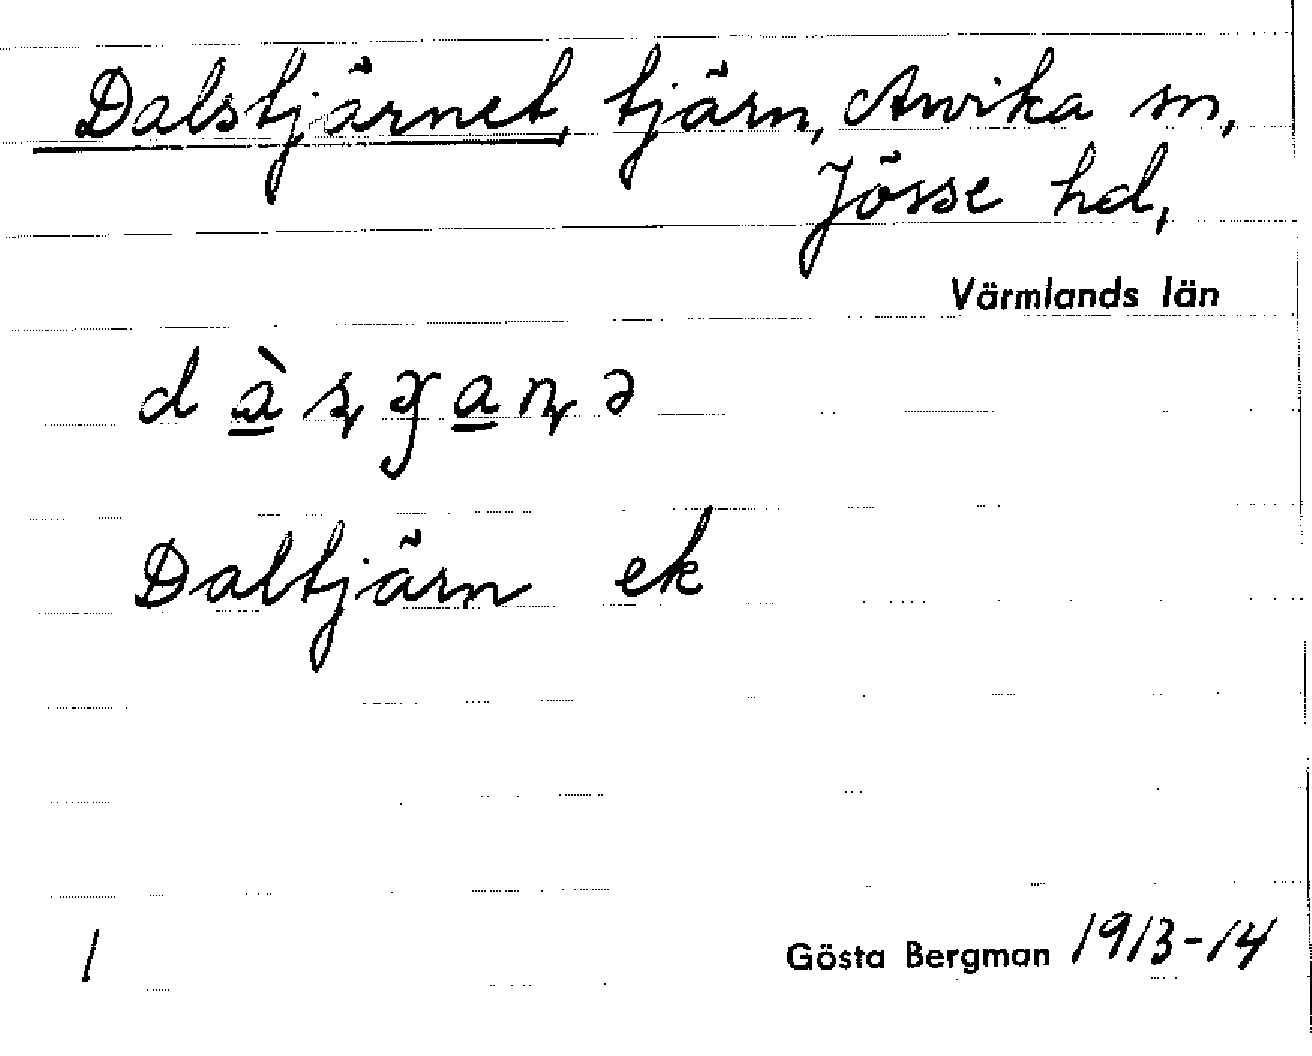 Dalstjärnet, tjärn, Arvika sn,
Jösse hd,
Värmlands län
Daltjärn ek
1
Gösta Bergman 1913-14